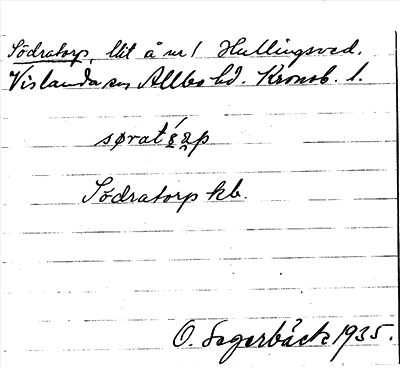 Södratorp, lht å nr 1 Hullingsved.
Vislanda sn Allbo hd. Kronob. l.
sørat
Södratorp kb.
O. Fagerbäck 1935.